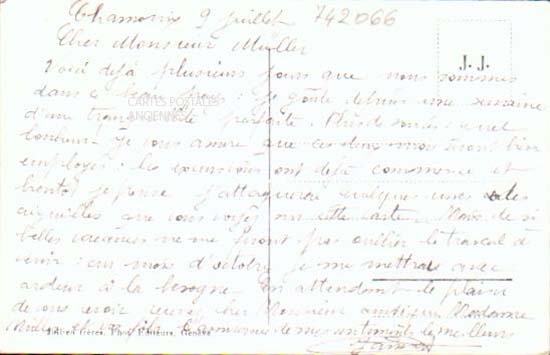 Chamonix 9 juillet 742066
Cher Monsieur Müller
J. J.
Voici déjà plusieurs jours que nous sommes
dans ce beau pays: je goûte depuis une semaine
CARTES POSTALES
ANCIENNES
d'une parfaite. quel
bonheur je vous assure que ces deux mois seront bien
employés: les excursions ont déjà commencé et
bientôt je pense j'attaquerai quelques unes des
aiguilles que vous voyez sur cette carte. Mais de si
belles vacances ne me feront pas oublier le travail à
venir: au mois d'octobre je me mettrai avec
ardeur à la besogne. En attendant le plaisir
de vous revoir recevez cher Monsieur ainsi que Madame
Jullien frères, Phot. Editeurs, Genève
de mes sentiments les meilleurs